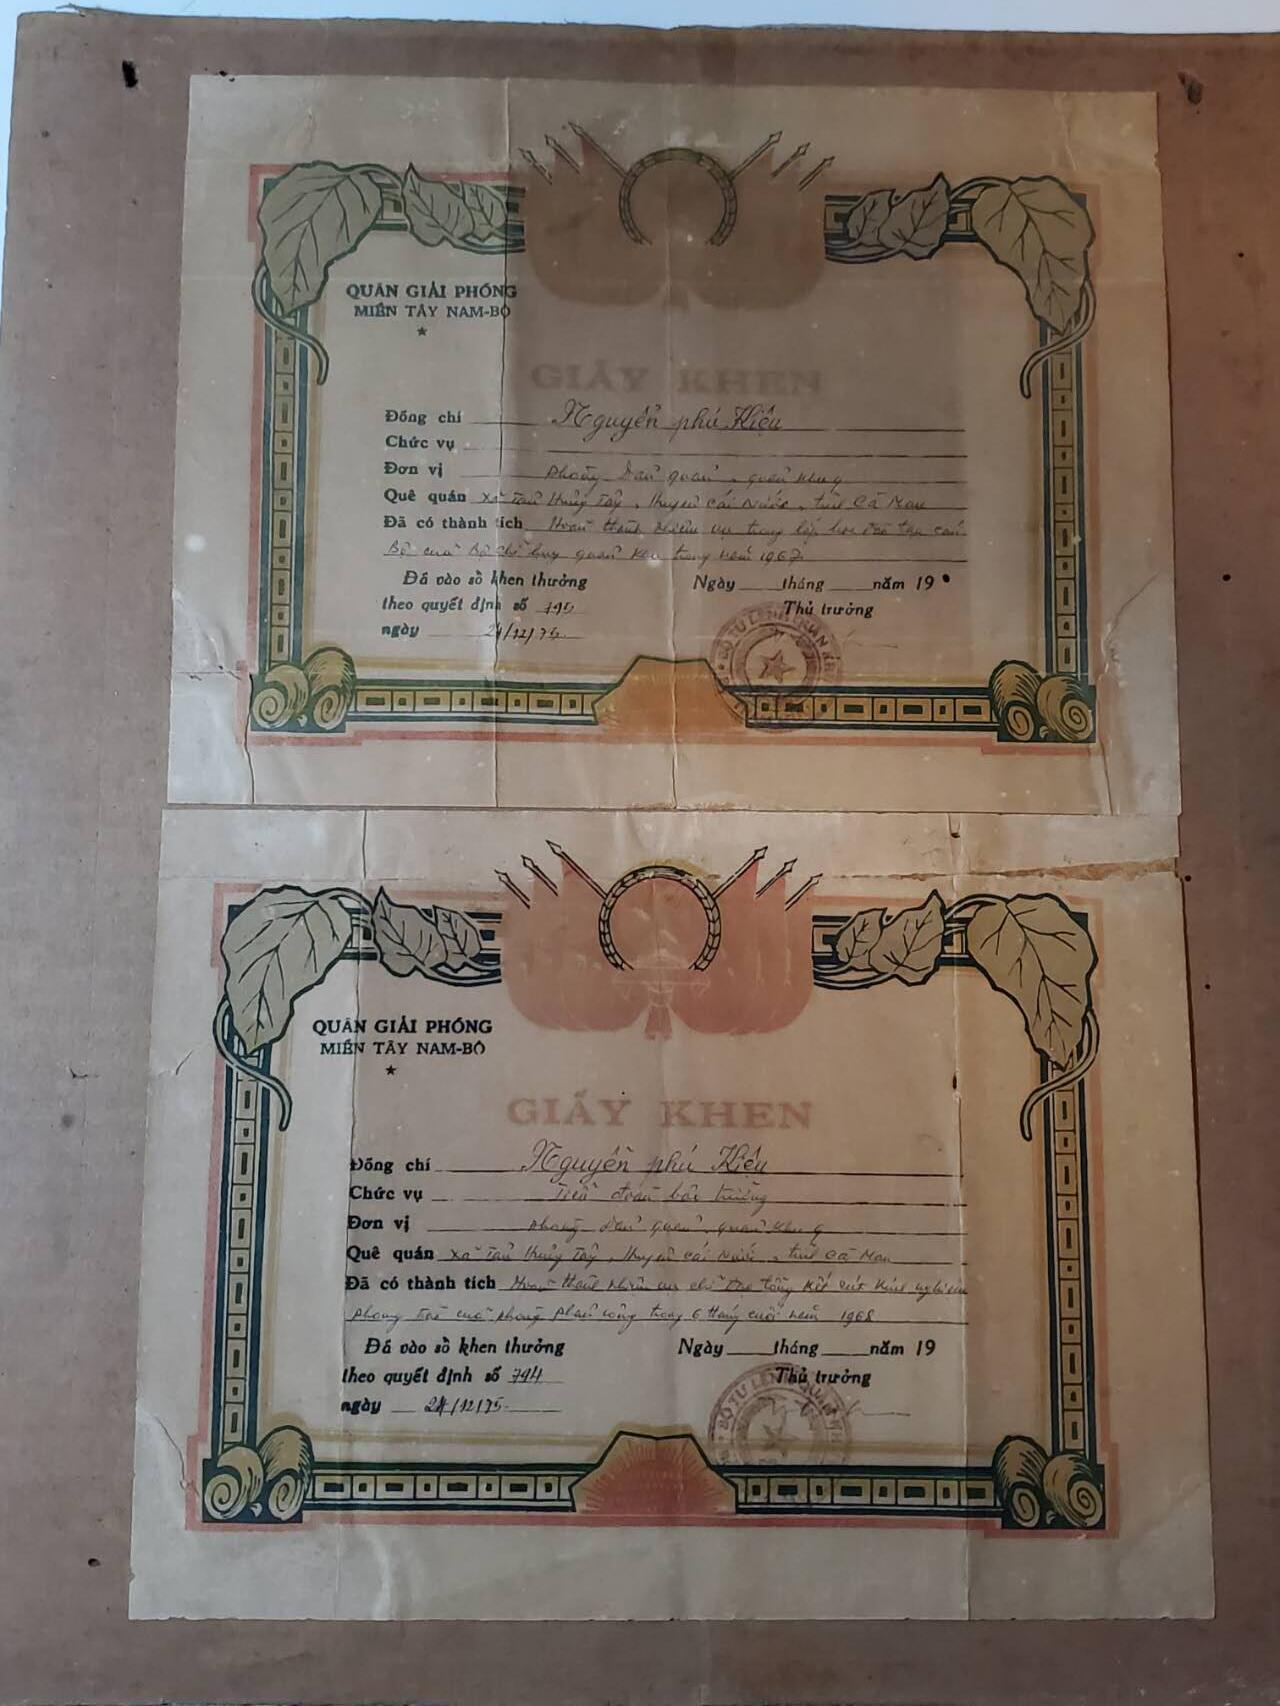 QUÂN GIẢI PHÓNG
MIỀN TÂY NAM-BỘ
GIẤY KHEN
Đồng chí Nguyễn phú Kiệu
Chức vụ
Đơn vị Phòng Dân quân, quân khu 9
Quê quán Xã Tân Hưng Tây, Huyện Cái Nước, tỉnh Cà Mau
Đã có thành tích Hoàn thành nhiệm vụ trong lớp học đào tạo cán
Bộ của Bộ chỉ huy quân khu trong năm 1967
Đã vào sổ khen thưởng Ngày tháng năm 19
theo quyết định số 795 Thủ trưởng
ngày 24/12/75
BỘ TƯ LỆNH QUÂN KH
QUÂN GIẢI PHÓNG
MIỀN TÂY NAM-BỘ
GIẤY KHEN
Đồng chí Nguyễn phú Kiệu
Chức vụ Tiểu đoàn bậc trưởng
Đơn vị Phòng Dân quân, quân khu 9
Quê quán Xã Tân Hưng Tây, Huyện Cái Nước, tỉnh Cà Mau
Đã có thành tích Hoàn thành nhiệm vụ chỉ đạo tổng kết rút kinh nghiệm
phong trào của phòng phân công trong 6 tháng cuối năm 1968
Đã vào sổ khen thưởng Ngày tháng năm 19
theo quyết định số 794 Thủ trưởng
ngày 24/12/75
BỘ TƯ LỆNH QUÂN KH